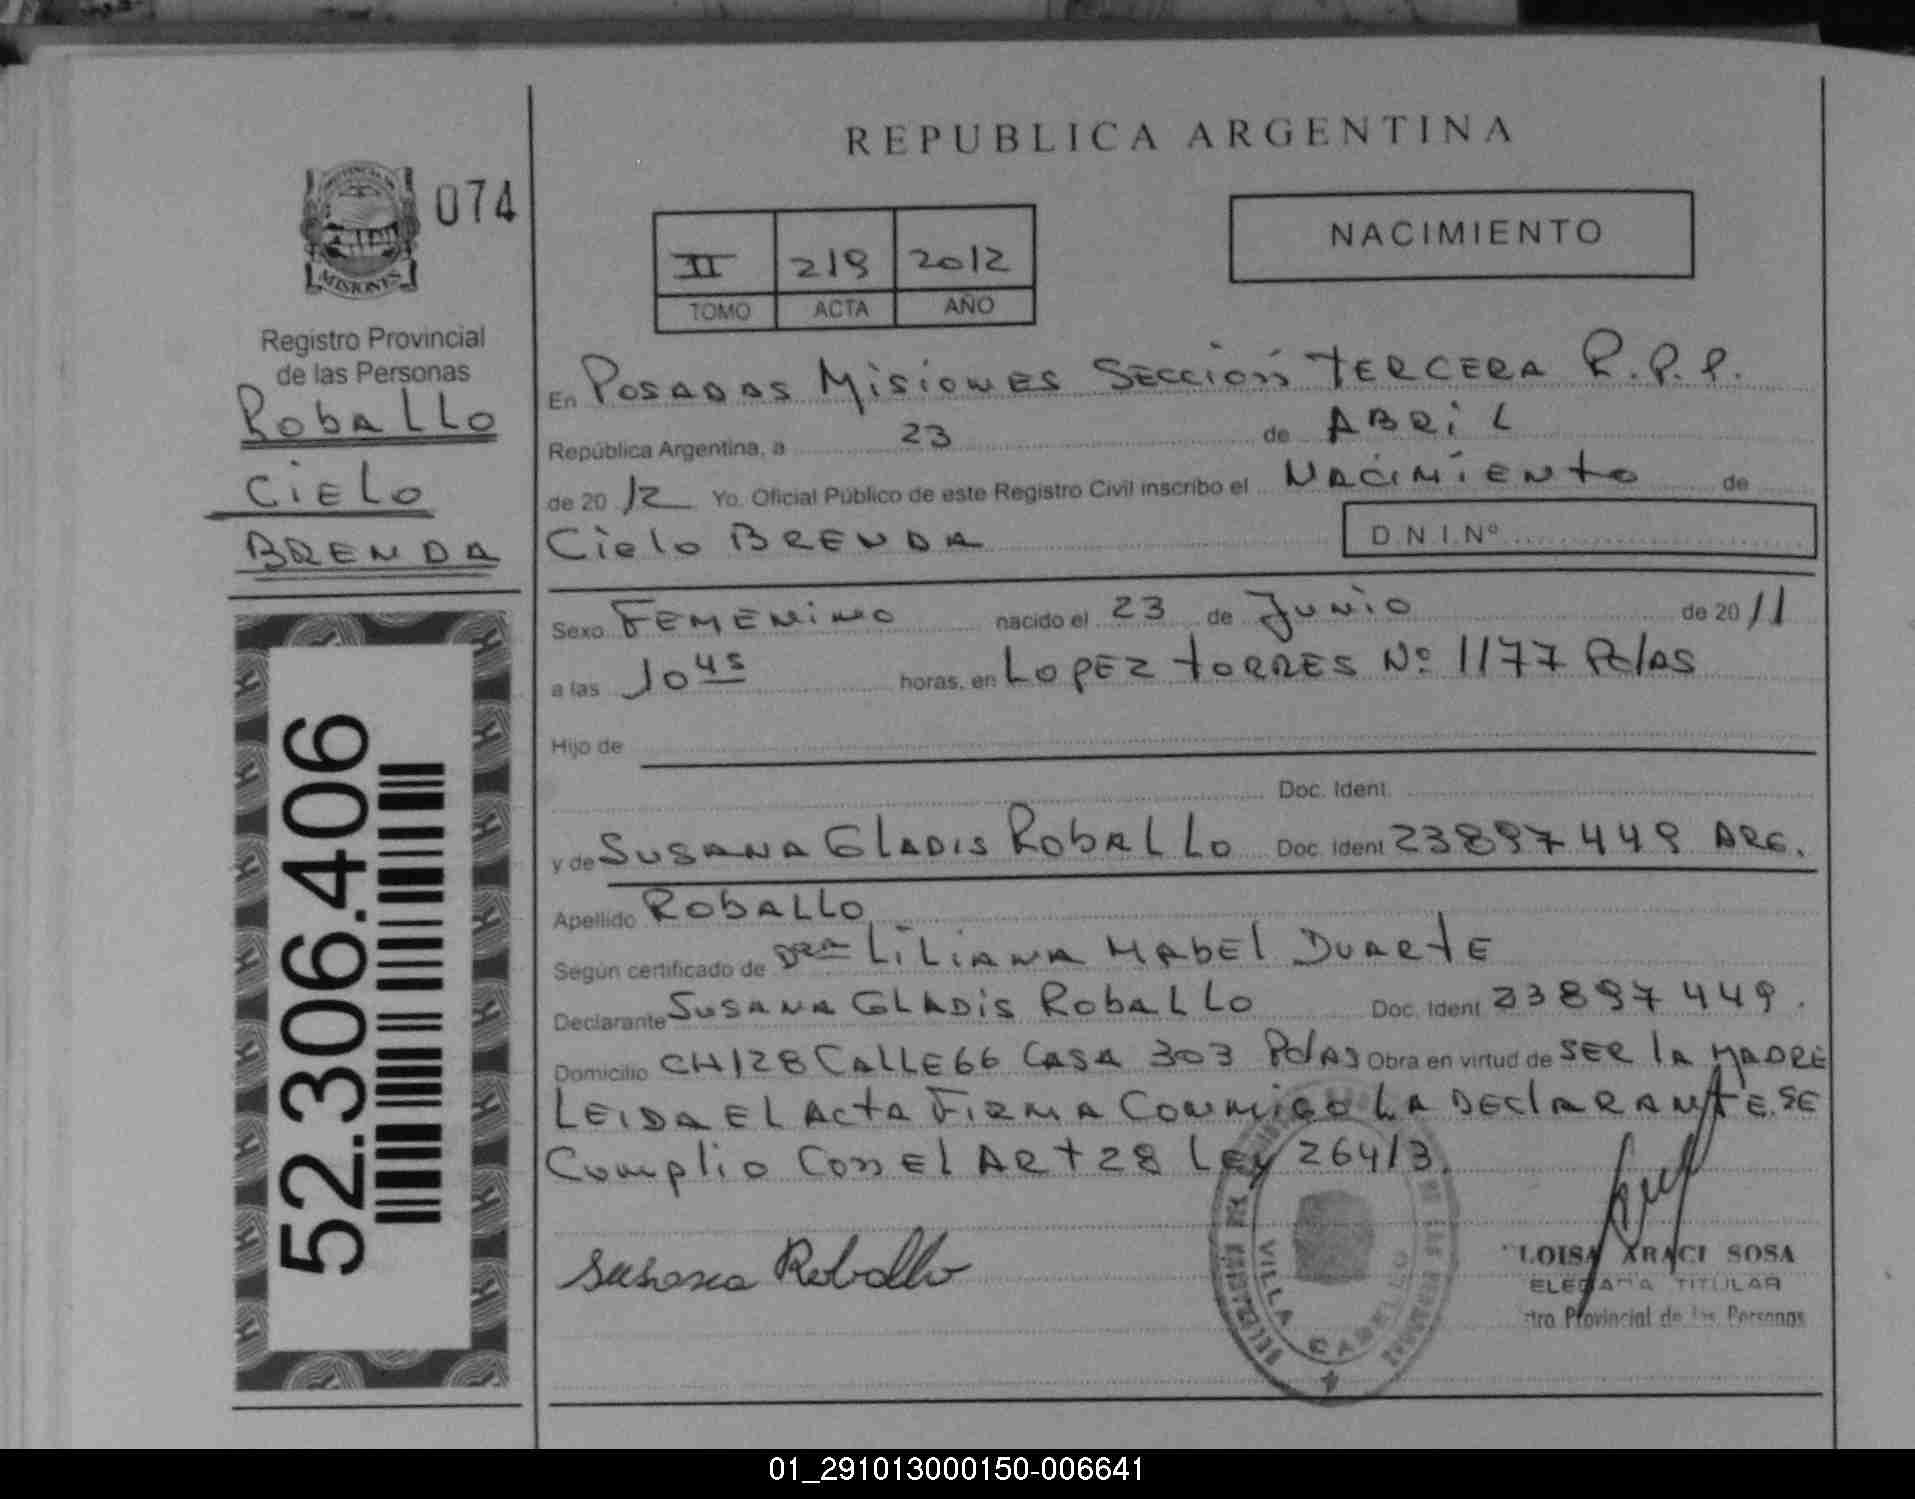 REPUBLICA ARGENTINA
074
MISIONES
Registro Provincial
de las Personas
Roballo
Cielo
BRENDA
52.306.406
II 219 2012
TOMO ACTA AÑO
NACIMIENTO
En POSADAS MISIONES SECCIÓN TERCERA R.P.P.
República Argentina, a 23 de ABRIL
de 20 12 Yo. Oficial Público de este Registro Civil inscribo el NACIMIENTO de
Cielo BRENDA D.N.I.Nº
Sexo FEMENINO nacido el 23 de JUNIO de 20 11
a las 10 45 horas, en LOPEZ TORRES Nº 1177 Pdas
Hijo de
Doc. Ident.
y de SUSANA GLADIS ROBALLO Doc. Ident 23897449 ARG.
Apellido ROBALLO
Según certificado de DRA LILIANA MABEL DUARTE
Declarante SUSANA GLADIS ROBALLO Doc. Ident 23897449.
Domicilio CH128 CALLE 66 CASA 303 Pdas Obra en virtud de SER LA MADRE
LEIDA EL ACTA FIRMA CONMIGO LA DECLARANTE. SE
Cumplio Con El ART 28 LEY 26413.
Susana Roballo
VILLA CABELLO
LOISA ARACI SOSA
ELEGADA TITULAR
stro Provincial de las Personas
01_291013000150-006641